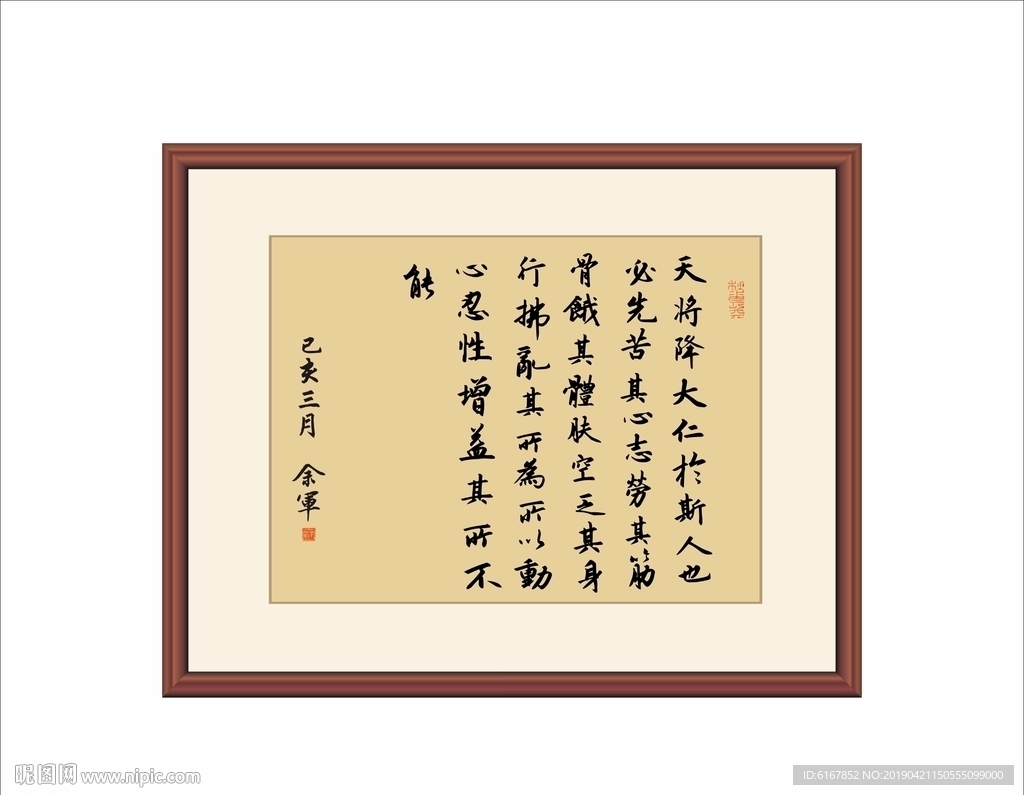 天将降大仁於斯人也
必先苦其心志勞其筋
骨餓其體膚空乏其身
行拂亂其所為所以動
心忍性增益其所不
能
己亥三月 余軍
昵图网 www.nipic.com
ID:6167852 NO:20190421150555099000